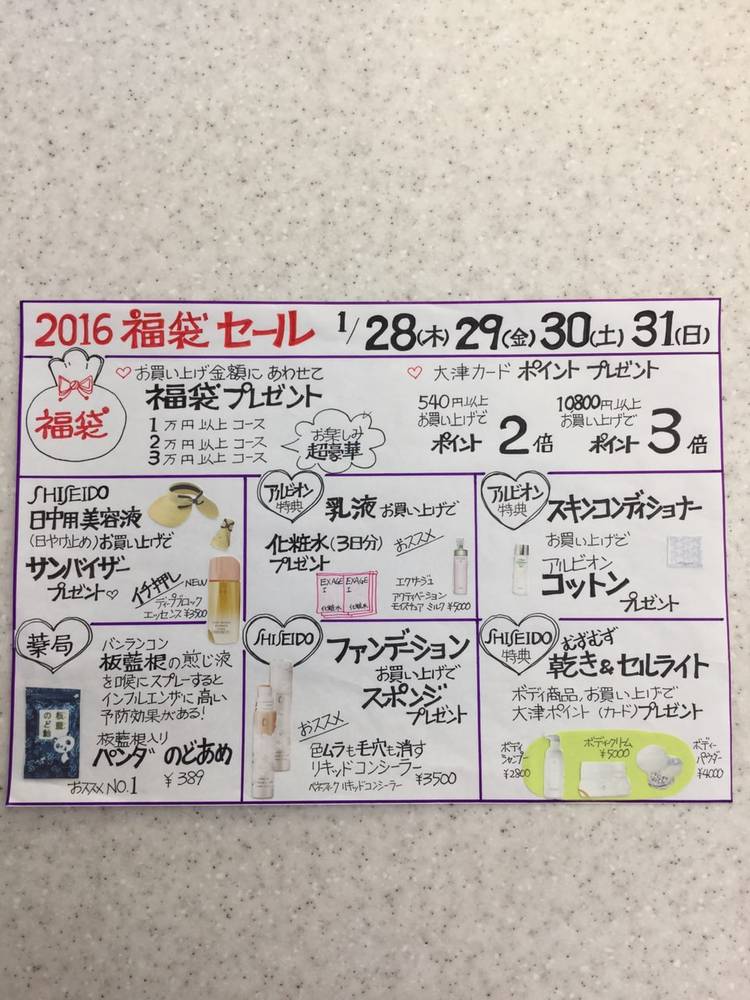 2016 福袋 セール 1/28(木) 29(金) 30(土) 31(日)
福袋
♡お買い上げ金額に あわせて
福袋 プレゼント
1万円以上 コース
2万円以上 コース
3万円以上 コース
お楽しみ
超豪華
♡大津カード ポイント プレゼント
540円以上
お買い上げで
ポイント 2倍
10,800円以上
お買い上げで
ポイント 3倍
SHISEIDO
日中用美容液
(日やけ止め)お買い上げで
サンバイザー
プレゼント♡
イチ押し
NEW
ディープブロック
エッセンス ¥3500
アルビオン
特典
乳液 お買い上げで
化粧水(3日分)
プレゼント
オススメ
EXAGE
I
化粧水
EXAGE
I
化粧水
エクサージュ
アクティベーション
モイスチュア ミルク ¥5000
アルビオン
特典
スキンコンディショナー
お買い上げで
アルビオン
コットン
プレゼント
薬局
バンランコン
板藍根の煎じ液
を喉にスプレーすると
インフルエンザに高い
予防効果がある!
板藍根入り
パンダ のどあめ
オススメNO.1 ¥389
板藍
のど飴
SHISEIDO
ファンデーション
お買い上げで
スポンジ
プレゼント
オススメ
色ムラも毛穴も消す
リキッドコンシーラー
リキッドコンシーラー ¥3500
SHISEIDO
特典
むずむず
乾き&セルライト
ボディ商品お買い上げで
大津ポイント(カード)プレゼント
ボディ
シャンプー
¥2800
ボディクリーム
¥5000
ボディー
パウダー
¥4000